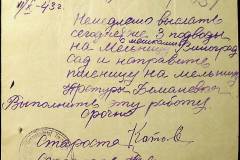 -43г.
Немедлено выслать
сегодня же 3 подводы
с мешками
на Мельницу Виноград
сад и направите
пшеницу на мельницу
Выполнить эту работу
срочно
Староста